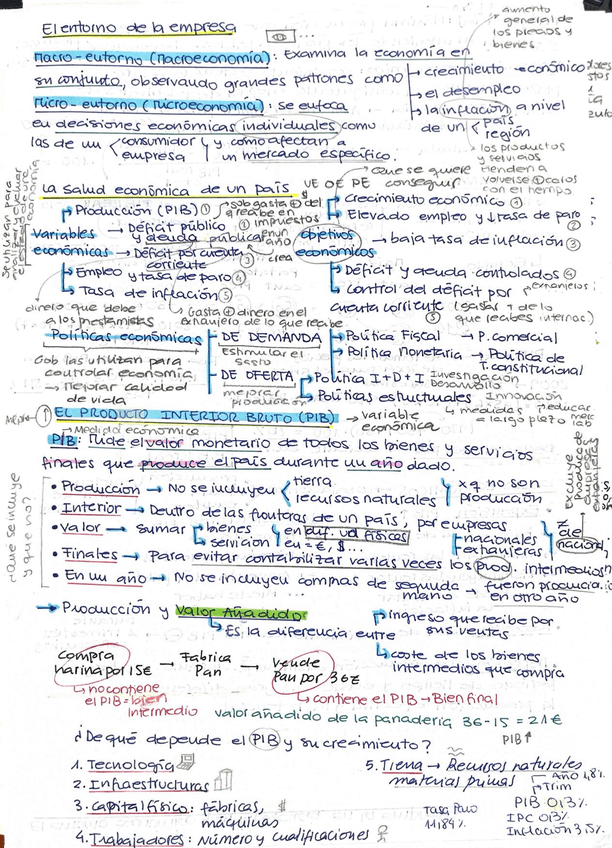 El entorno de la empresa
aumento
general de
los precios y
bienes
Macro-entorno (Macroeconomía): Examina la economía en
su conjunto, observando grandes patrones como
→ crecimiento económico
→ el desempleo
→ la inflación a nivel
de un < país
región
Micro-entorno (Microeconomía): se enfoca
en decisiones económicas individuales como
las de un < consumidor y como afectan a
empresa un mercado específico.
→ los productos
y servicios
tienden a
volverse caros
con el tiempo
La salud económica de un país
UE OE PE
que se quiere
conseguir
Se utilizan para
economía
variables
económicas
→ Producción (PIB) ①
→ Déficit público
y deuda pública
→ Déficit por cuenta
corriente ③
→ Empleo y tasa de paro ④
→ Tasa de inflación ⑤
→ sob gasta + del
q recibe en
impuestos
en un
año
crea
objetivos
económicos
→ Crecimiento económico ①
→ Elevado empleo y ↓ tasa de paro ②
→ baja tasa de inflación ③
→ Déficit y deuda controlados ④
→ Control del déficit por
cuenta corriente (gastar + de lo
⑤ que recibes internac)
dinero que debe
a los prestamistas
Gasta + dinero en el
extranjero de lo que recibe
Políticas económicas
Gob las utilizan para
controlar economía
→ Mejorar calidad
de vida
DE DEMANDA
Estimular el
gasto
→ Política Fiscal → P. comercial
→ Política Monetaria → Política de
T. constitucional
DE OFERTA
mejorar
producción
→ Política I+D+I
Investigación
Desarrollo
Innovación
→ Políticas estructurales
↳ medidas
= largo plazo
educar
mer
lab
① EL PRODUCTO INTERIOR BRUTO (PIB) → variable
económica
→ Medida económica
PIB: Mide el valor monetario de todos los bienes y servicios
finales que produce el país durante un año dado.
¿Que se incluye
y que no?
• Producción → No se incluyen < tierra
recursos naturales } xq no son
producción
• Interior → Dentro de las fronteras de un país, por empresas
nacionales
extranjeras
≠ de
nacional
Excluye
• Valor → sumar bienes
servicios
en uf. vd físicos
en - €, $...
• Finales → Para evitar contabilizar varias veces los prod. intermedios
• En un año → No se incluyen compras de segunda
mano → fueron
en otro año
→ Producción y Valor Añadido
↳ Es la diferencia entre
→ ingreso que recibe por
sus ventas
↳ coste de los bienes
intermedios que compra
compra
harina por 15€ → Fabrica
Pan → Vende
Pan por 36€
↳ no contiene
el PIB = bien
Intermedio
↳ contiene el PIB → Bien final
valor añadido de la panadería 36-15 = 21€
¿De qué depende el PIB y su crecimiento?
PIB↑
1. Tecnología
2. Infraestructuras
3. Capital físico: fábricas,
máquinas
4. Trabajadores: Número y cualificaciones
5. Tierra → Recursos naturales
materias primas
Tasa Paro
11,84%
Año 1,8%
Trim
PIB 0,3%
IPC 0,3%
Inflación 3,5%